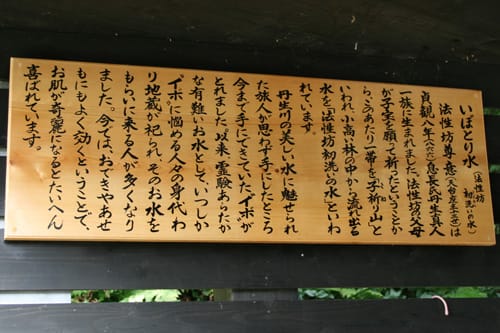 いぼとり水(法性坊初洗いの水)
法性坊尊意(天台座主十三世)は
貞観八年(八六六)息長氏丹生真人
一族に生まれました。法性坊の父母
が子宝を願って祈ったということか
ら、このあたり一帯を「子祈り山」と
いわれ、小高い林の中から流れ出る
水を「法性坊初洗いの水」といわ
れています。
丹生川の美しい水に魅せられ
た旅人が思わず手にしたところ
今まで手にできていたイボが
とれました。以来、霊験あらたか
な有難いお水として、いつしか
イボに悩める人々の身代わ
り地蔵が祀られ、そのお水を
もらいに来る人が多くなり
ました。今では、おできやあせ
もにもよく効くということで、
お肌が奇麗になるとたいへん
喜ばれています。